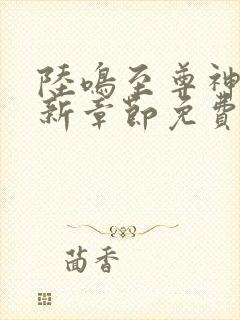 陸鳴至尊神
新章節免費
茴香